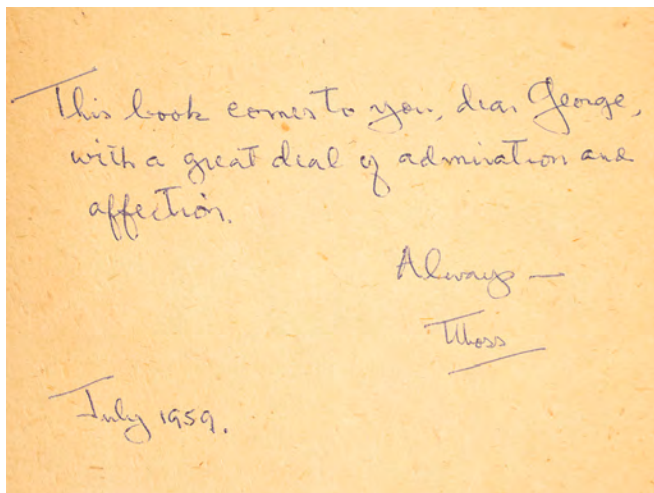 This book comes to you, dear George,
with a great deal of admiration and
affection.
Always —
Moss
July 1959.